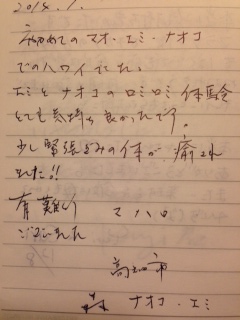 2014.1.
初めてのマオ・エミ・ナオコ
でのハワイでした。
エミとナオコのロミロミ体験
とても気持ち良かったです。
少し緊張ぎみの体が癒され
ました!!
有難う マハロ
ございました
高知市
ナオコ・エミ